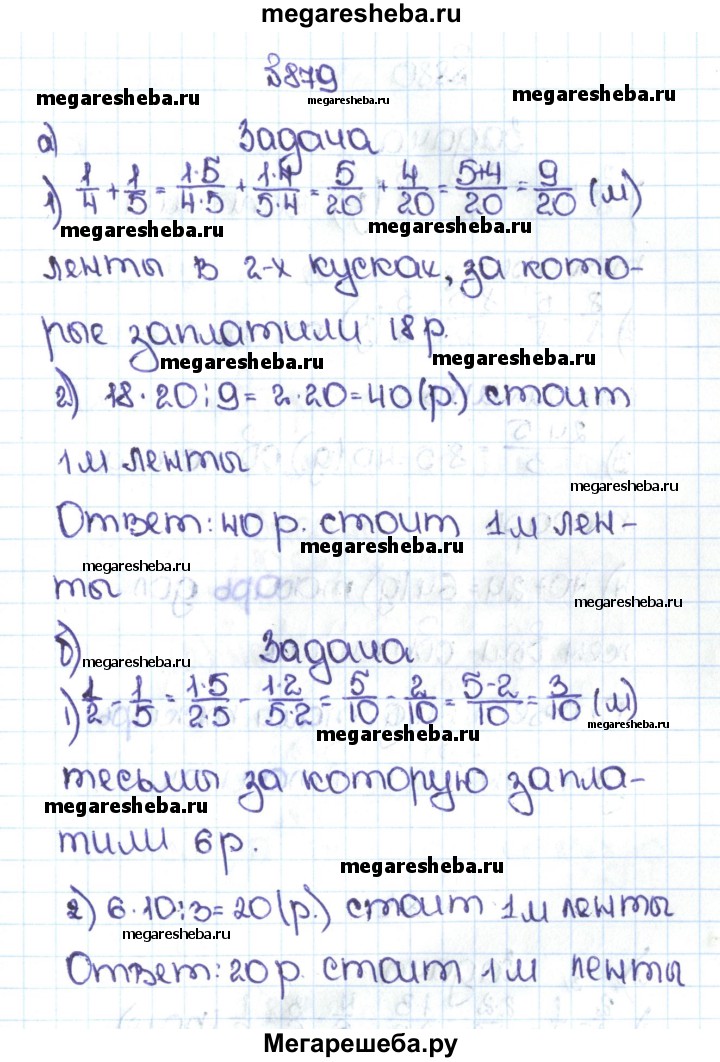 megaresheba.ru
№879
megaresheba.ru megaresheba.ru megaresheba.ru
а) Задача
1) 1/4 + 1/5 = 1·5/4·5 + 1·4/5·4 = 5/20 + 4/20 = 5+4/20 = 9/20 (м)
megaresheba.ru megaresheba.ru
ленты в 2-х кусках, за кото-
рые заплатили 18 р.
megaresheba.ru megaresheba.ru
2) 18·20:9=2·20=40(р.) стоит
1м ленты
megaresheba.ru
Ответ: 40 р. стоит 1м лен-
megaresheba.ru
megaresheba.ru
ты
megaresheba.ru
б) Задача
megaresheba.ru
1) 1/2 - 1/5 = 1·5/2·5 - 1·2/5·2 = 5/10 - 2/10 = 5-2/10 = 3/10 (м)
megaresheba.ru megaresheba.ru
тесьмы за которую запла-
megaresheba.ru
тили 6р.
megaresheba.ru
2) 6·10:3=20(р.) стоит 1м ленты
megaresheba.ru
Ответ: 20 р. стоит 1м ленты
Мегарешеба.ру